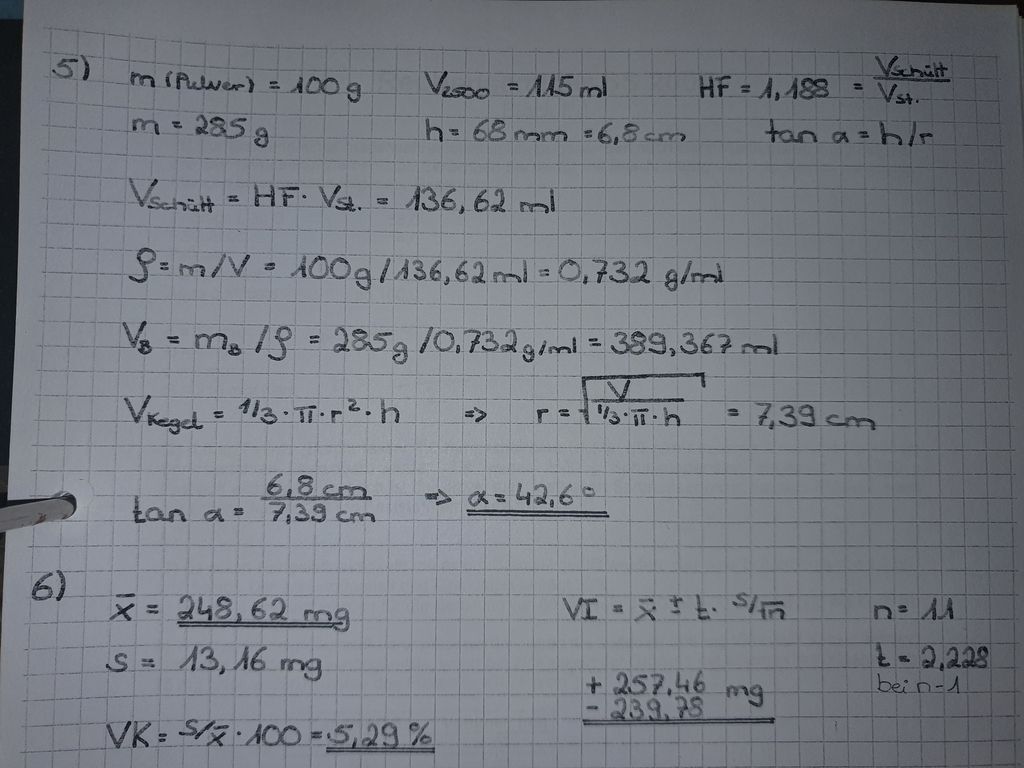 5) m (Pulver) = 100 g V2500 = 115 ml HF = 1,188 = VSchütt/VSt.
m = 285 g h = 68 mm = 6,8 cm tan α = h/r
VSchütt = HF · VSt. = 136,62 ml
ρ = m/V = 100 g / 136,62 ml = 0,732 g/ml
VB = mB / ρ = 285 g / 0,732 g/ml = 389,367 ml
VKegel = 1/3 · π · r² · h => r = √(V / (1/3 · π · h)) = 7,39 cm
tan α = 6,8 cm / 7,39 cm => α = 42,6°
6) x̄ = 248,62 mg VI = x̄ ± t · s/√n n = 11
s = 13,16 mg t = 2,228
bei n-1
+ 257,46 mg
- 239,78
VK = s/x̄ · 100 = 5,29 %